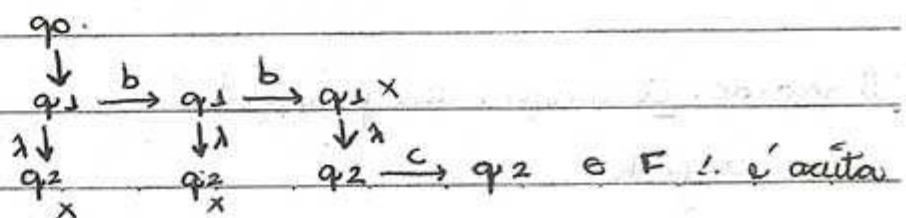 q0.
↓
q1 —b→ q1 —b→ q1 x
λ↓ ↓λ ↓λ
q2 q2 q2 —c→ q2 ∈ F ∴ é aceita
x x